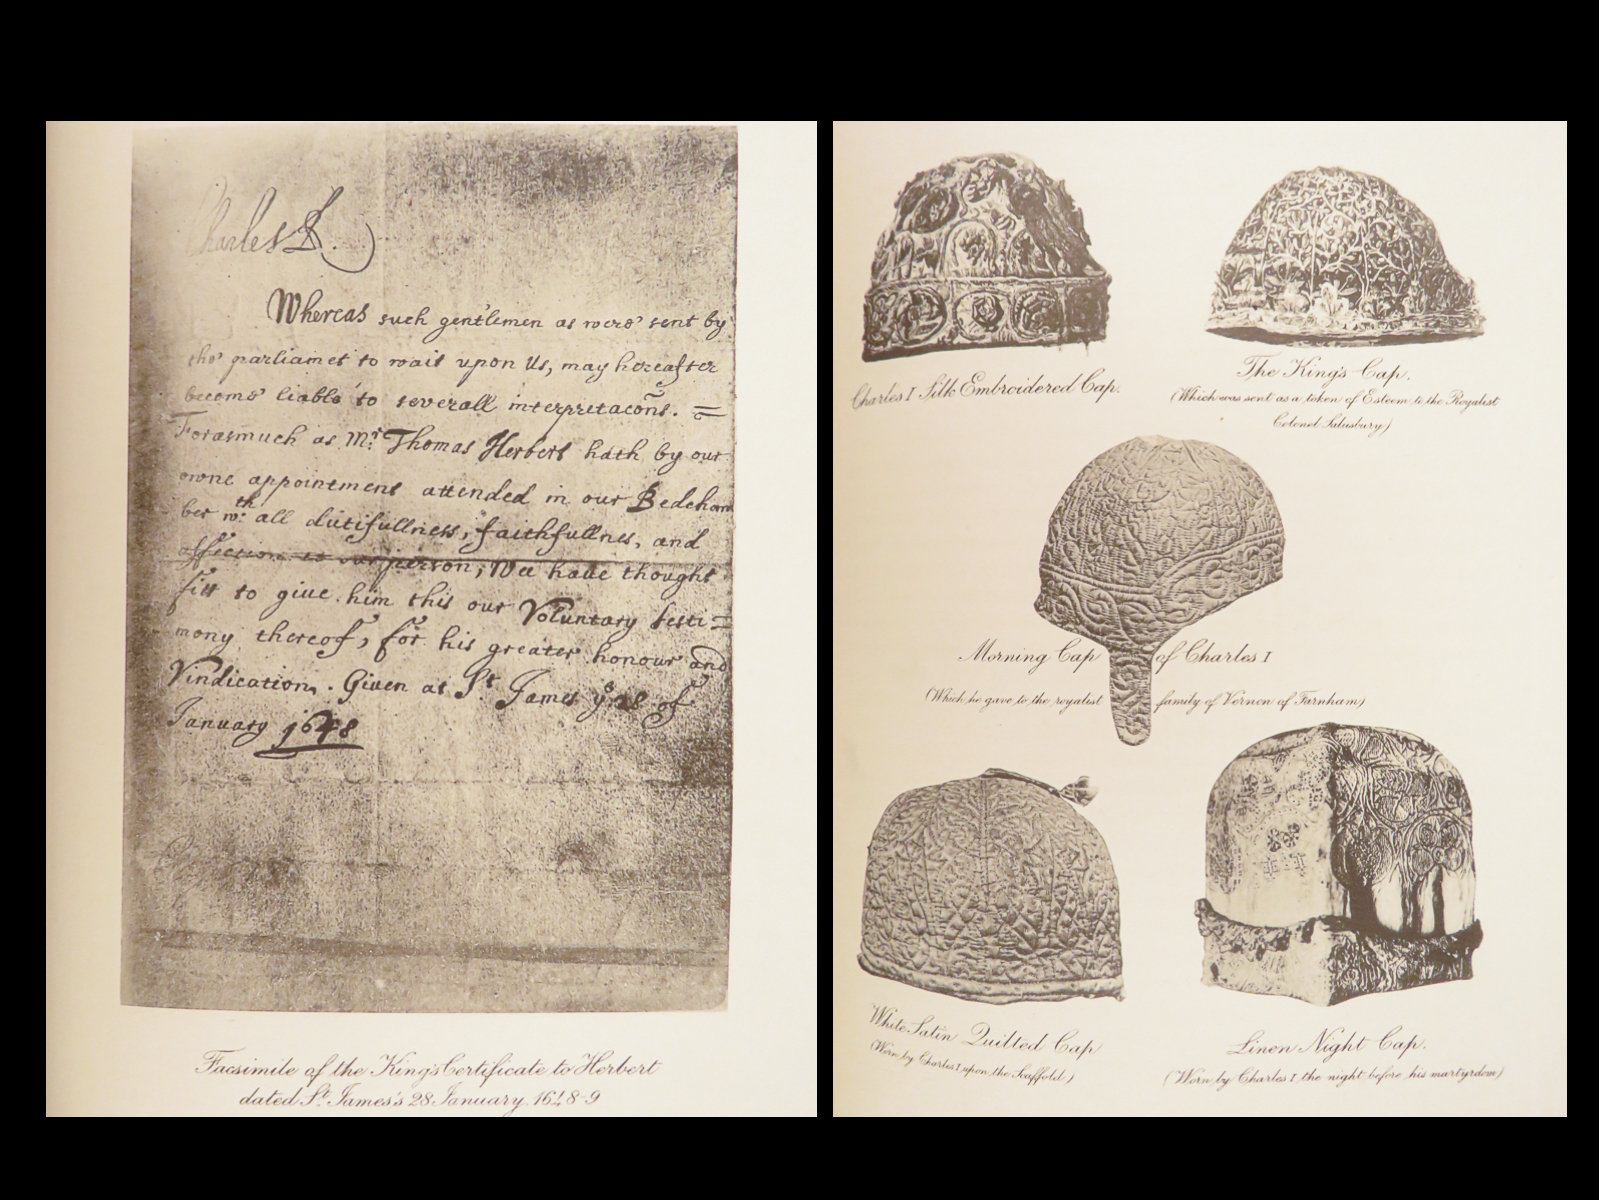 Charles R.
Whereas such gentlemen as were sent by
the parliamet to wait upon Us, may hereafter
become liable to severall interpretacōns. =
Forasmuch as Mr. Thomas Herbert hath by our
owne appointment attended in our Bedcham
ber wth: all dutifullness, faithfullnes, and
affection to our person; Wee have thought
fitt to give him this our Voluntary testi=
mony thereof, for his greater honour and
Vindication. Given at St James ye 28 of
January 1648
Facsimile of the King's Certificate to Herbert
dated St James's 28 January, 1648-9
Charles I Silk Embroidered Cap.
The King's Cap.
(Which was sent as a token of Esteem to the Royalist
Colonel Salusbury)
Morning Cap of Charles I
(Which he gave to the royalist family of Vernon of Farnham)
White Satin Quilted Cap
(Worn by Charles I upon the Scaffold)
Linen Night Cap.
(Worn by Charles I, the night before his martyrdom)